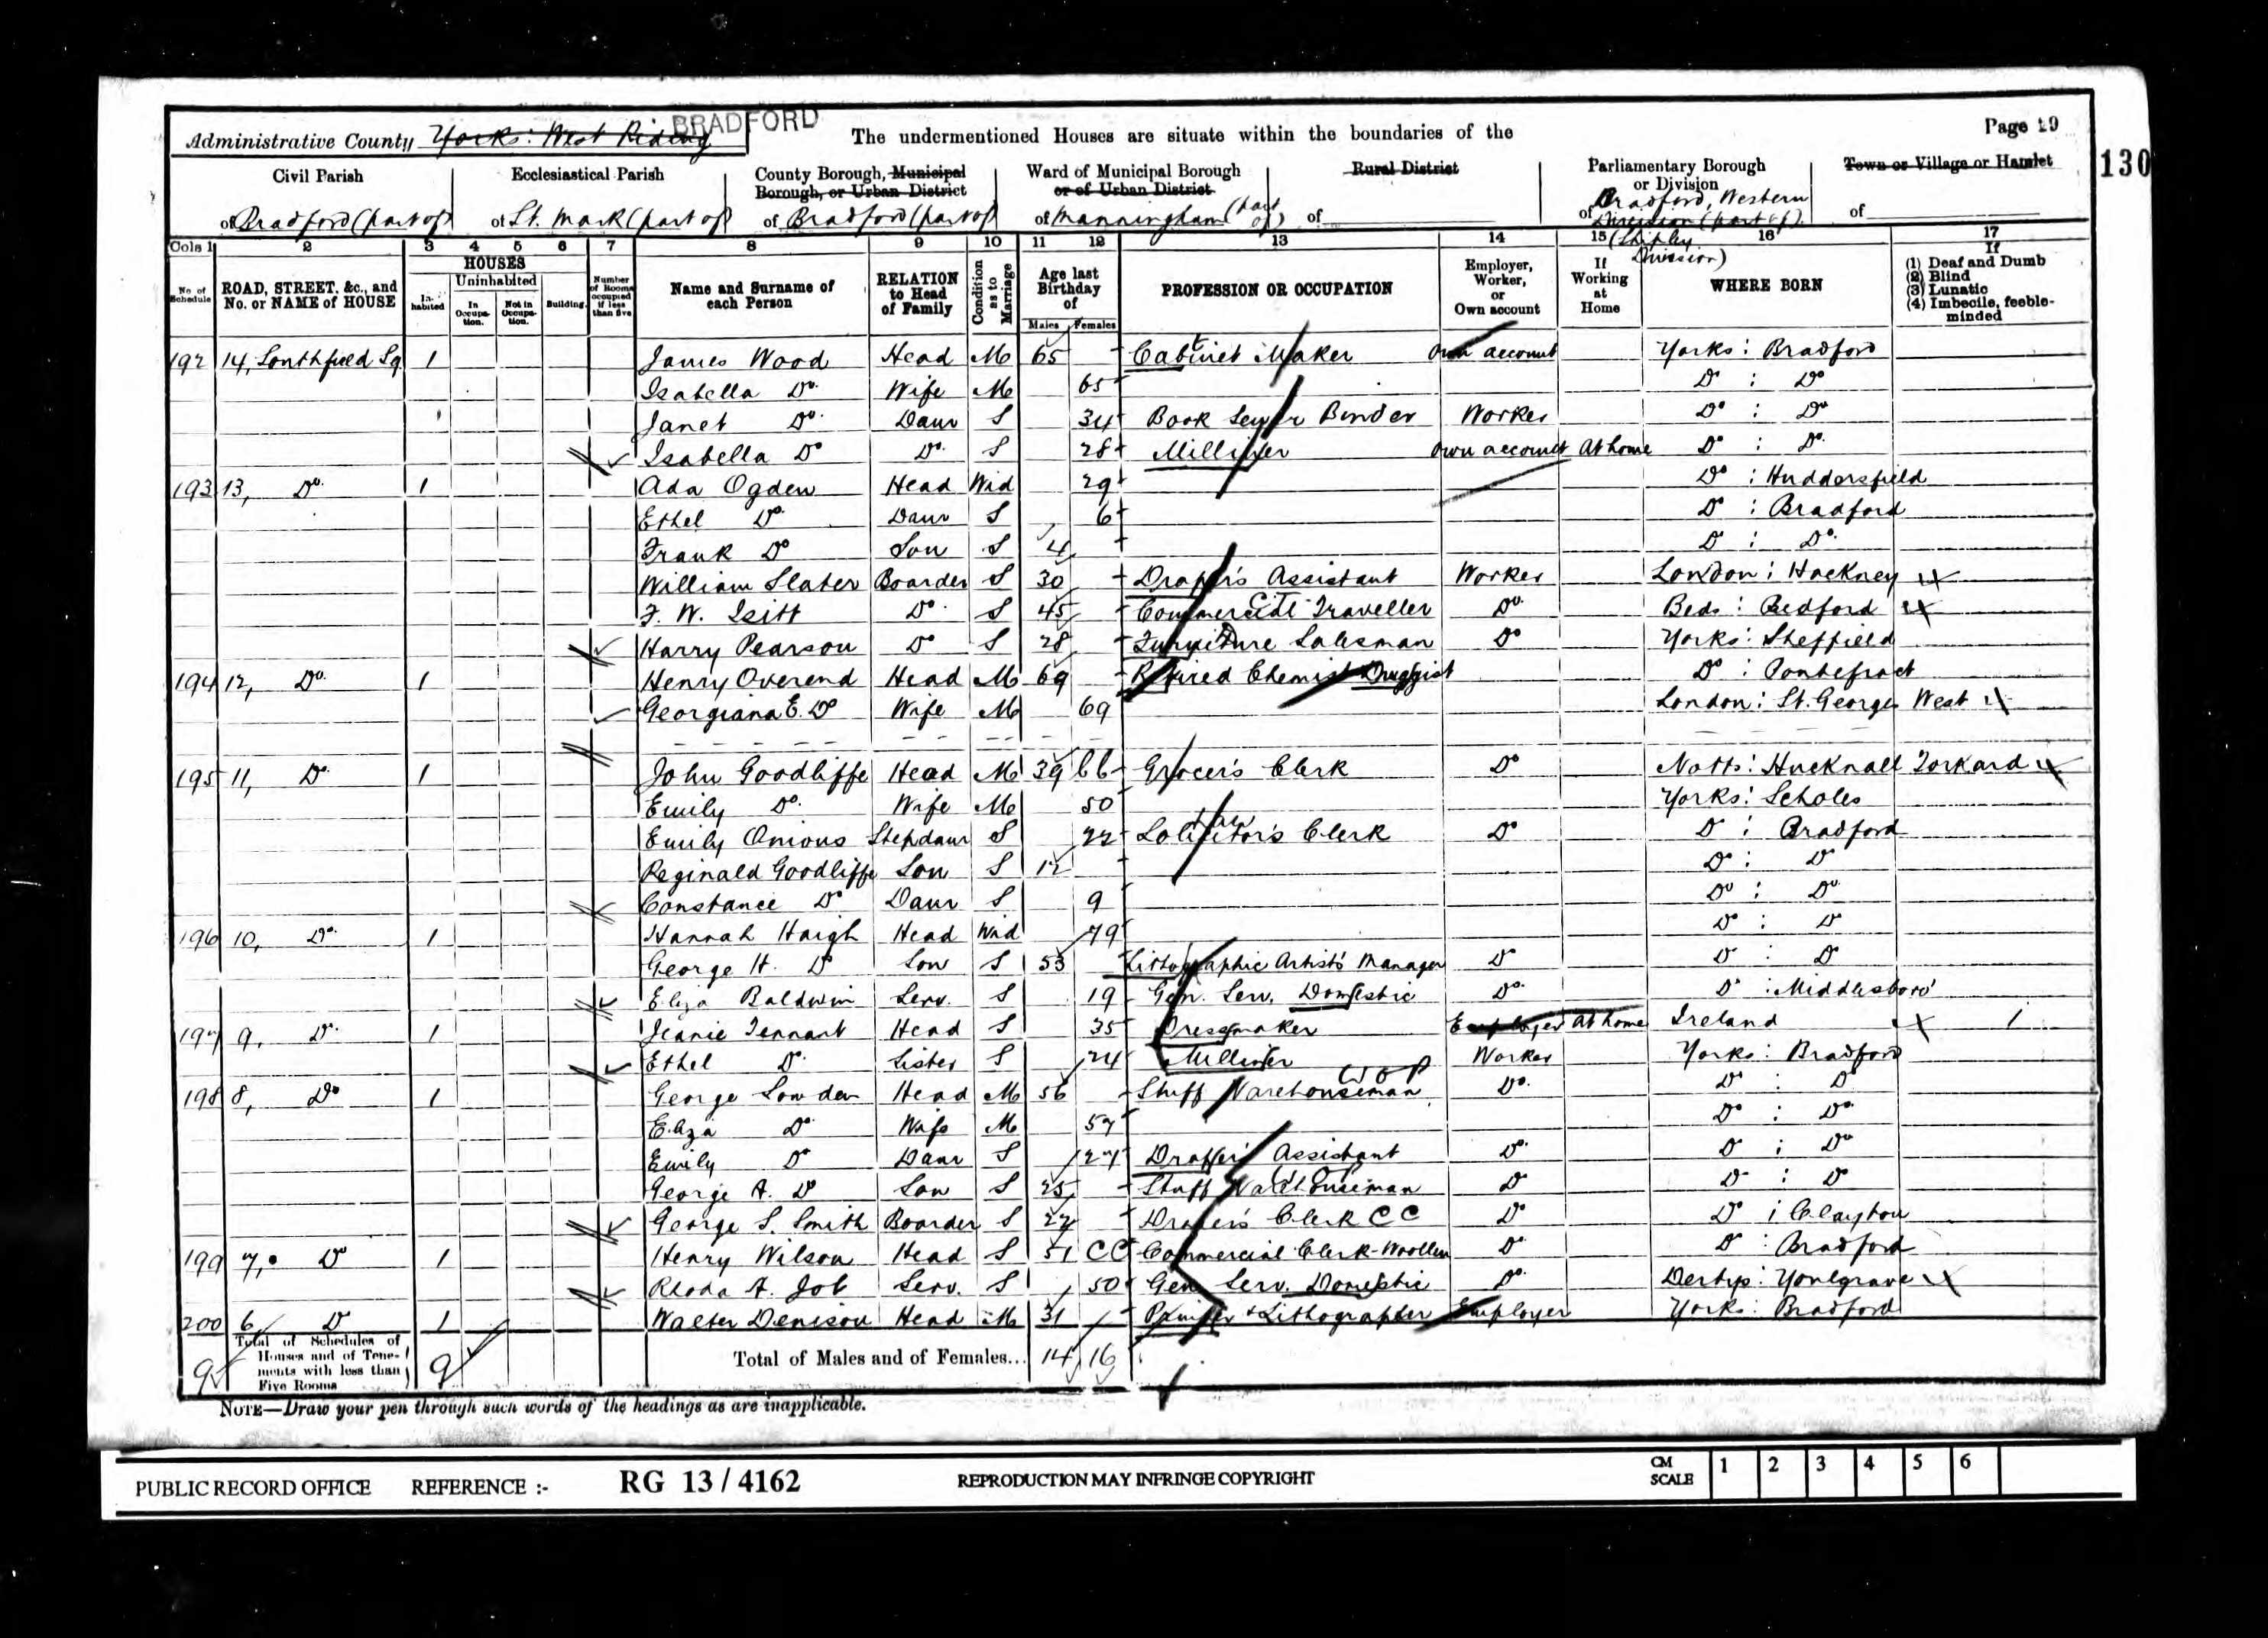 BRADFORD
Administrative County Yorks: West Riding The undermentioned Houses are situate within the boundaries of the Page 19
130
Civil Parish Ecclesiastical Parish County Borough, Municipal Borough, or Urban District Ward of Municipal Borough or of Urban District Rural District Parliamentary Borough or Division Town or Village or Hamlet
of Bradford (part of) of St. Mark (part of) of Bradford (part of) of Manningham (part of) of of Bradford, Western Division (part of) (Shipley Division) of
Cols 1 2 3 4 5 6 7 8 9 10 11 12 13 14 15 16 17
No. of Schedule ROAD, STREET, &c., and No. or NAME of HOUSE HOUSES Inhabited Uninhabited In Occupation. Not in Occupation. Building. Number of Rooms occupied if less than five Name and Surname of each Person RELATION to Head of Family Condition as to Marriage Age last Birthday of Males Females PROFESSION OR OCCUPATION Employer, Worker, or Own account If Working at Home WHERE BORN If (1) Deaf and Dumb (2) Blind (3) Lunatic (4) Imbecile, feeble-minded
192 14, Southfield Sq. 1 James Wood Head M 65 Cabinet Maker Own account Yorks: Bradford
Isabella Do. Wife M 65 Do : Do
Janet Do. Daur S 34 Book Sewer Binder Worker Do : Do
Isabella Do Do. S 28 Milliner Own account At home Do : Do.
193 13, Do. 1 Ada Ogden Head Wid 29 Do : Huddersfield
Ethel Do. Daur S 6 Do : Bradford
Frank Do Son S 4 Do : Do.
William Slater Boarder S 30 Draper's Assistant Worker London: Hackney
F. W. Isitt Do. S 45 Commercial Traveller Do. Beds: Bedford
Harry Pearson Do S 28 Furniture Salesman Do Yorks: Sheffield
194 12, Do. 1 Henry Overend Head M 69 Retired Chemist Druggist Do : Pontefract
Georgiana E. Do Wife M 69 London: St. Georges West
195 11, Do. 1 John Goodliffe Head M 39 Grocer's Clerk Do Notts: Hucknall Torkard
Emily Do. Wife M 50 Yorks: Scholes
Law
Emily Onions Stepdaur S 22 Solicitor's Clerk Do Do : Bradford
Reginald Goodliffe Son S 12 Do : Do
Constance Do Daur S 9 Do : Do.
196 10, Do. 1 Hannah Haigh Head Wid 79 Do : Do
George H. Do Son S 53 Lithographic Artist's Manager Do Do : Do
Eliza Baldwin Serv. S 19 Gen. Serv. Domestic Do. Do : Middlesboro'
197 9, Do. 1 Jeanie Tennant Head S 35 Dressmaker Employer At home Ireland 1
Ethel Do. Sister S 24 Milliner Worker Yorks: Bradford
198 8, Do 1 George Lowden Head M 56 Stuff Warehouseman Do. Do : Do
Eliza Do. Wife M 57 Do : Do.
Emily Do Daur S 27 Draper's Assistant Do. Do : Do
George A. Do Son S 25 Stuff Warehouseman Do Do : Do
George S. Smith Boarder S 27 Draper's Clerk CC Do Do : Clayton
199 7, Do 1 Henry Wilson Head S 51 CC Commercial Clerk-Woollen Do Do : Bradford
Rhoda A. Job Serv. S 50 Gen Serv. Domestic Do. Derbys: Youlgrave
200 6 Do 1 Walter Denison Head M 31 Printer & Lithographer Employer Yorks: Bradford
9 Total of Schedules of Houses and of Tenements with less than Five Rooms 9 Total of Males and of Females... 14 16
NOTE—Draw your pen through such words of the headings as are inapplicable.
PUBLIC RECORD OFFICE REFERENCE :- RG 13 / 4162 REPRODUCTION MAY INFRINGE COPYRIGHT CM SCALE 1 2 3 4 5 6